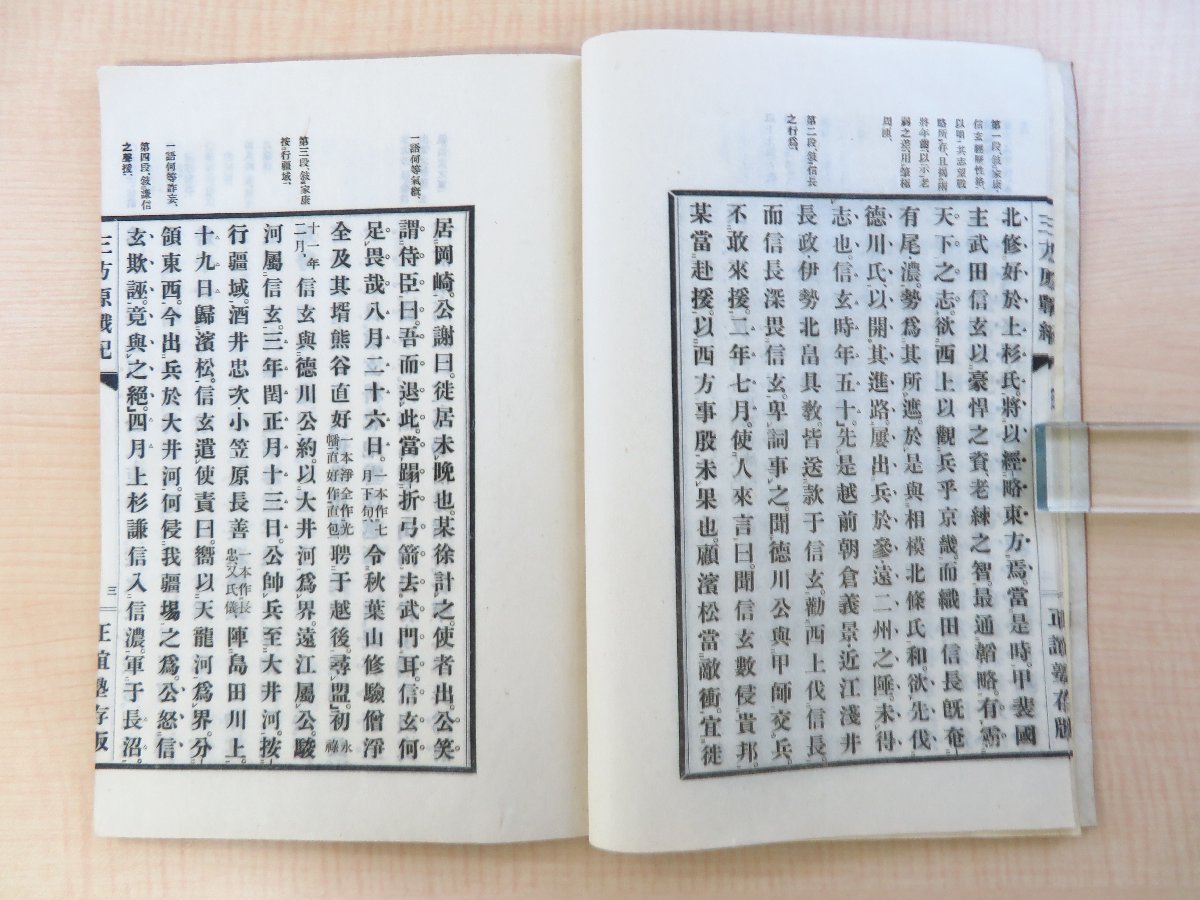 第一段、敍家康、
信玄經歷性格、
以明其志望戰
略所存、且揭兩
將年齒、以示老
弱之差、用筆極
周到、
第二段、敍信長
之行爲、
北修好於上杉氏、將以經略東方焉。當是時、甲斐國
主武田信玄以豪悍之資老練之智、最通韜略。有霸
天下之志。欲西上以觀兵乎京畿。而織田信長既奄
有尾濃。勢爲其所遮。於是與相模北條氏和。欲先伐
德川氏、以開其進路。屢出兵於參遠二州之陲、未得
志也。信玄時年五十。先是越前朝倉義景・近江淺井
長政・伊勢北畠具教。皆送款于信玄。勸西上伐信長。
而信長深畏信玄。卑詞事之。聞德川公與甲師交兵。
不敢來援。二年七月。使人來言曰。聞信玄數侵貴邦。
某當赴援。以西方事殷未果也。顧濱松當敵衝。宜徙
一語何等氣概、
第三段、敍家康
按行疆域、
一語何等詐妄、
第四段、敍謙信
之聲援、
居岡崎。公謝曰。徙居未晚也。某徐計之。使者出。公笑
謂侍臣曰。吾而退此。當蹋折弓箭去武門耳。信玄何
足畏哉。八月二十六日。一本作七月下旬令秋葉山修驗僧淨
全及其壻熊谷直好一本淨全作光幡直好作直包聘于越後。尋盟。初永祿
十一年二月、信玄與德川公約。以大井河爲界。遠江屬公。駿
河屬信玄。三年閏正月十三日。公帥兵至大井河。按
行疆域。酒井忠次・小笠原長善一本作長忠、又氏儀、陣島田川上。
十九日歸濱松。信玄遣使責曰。嚮以天龍河爲界。分
領東西。今出兵於大井河。何侵我疆場之爲。公怒信
玄欺誣。竟與之絕。四月上杉謙信入信濃。軍于長沼。
三方原戰記
三
正誼塾存版